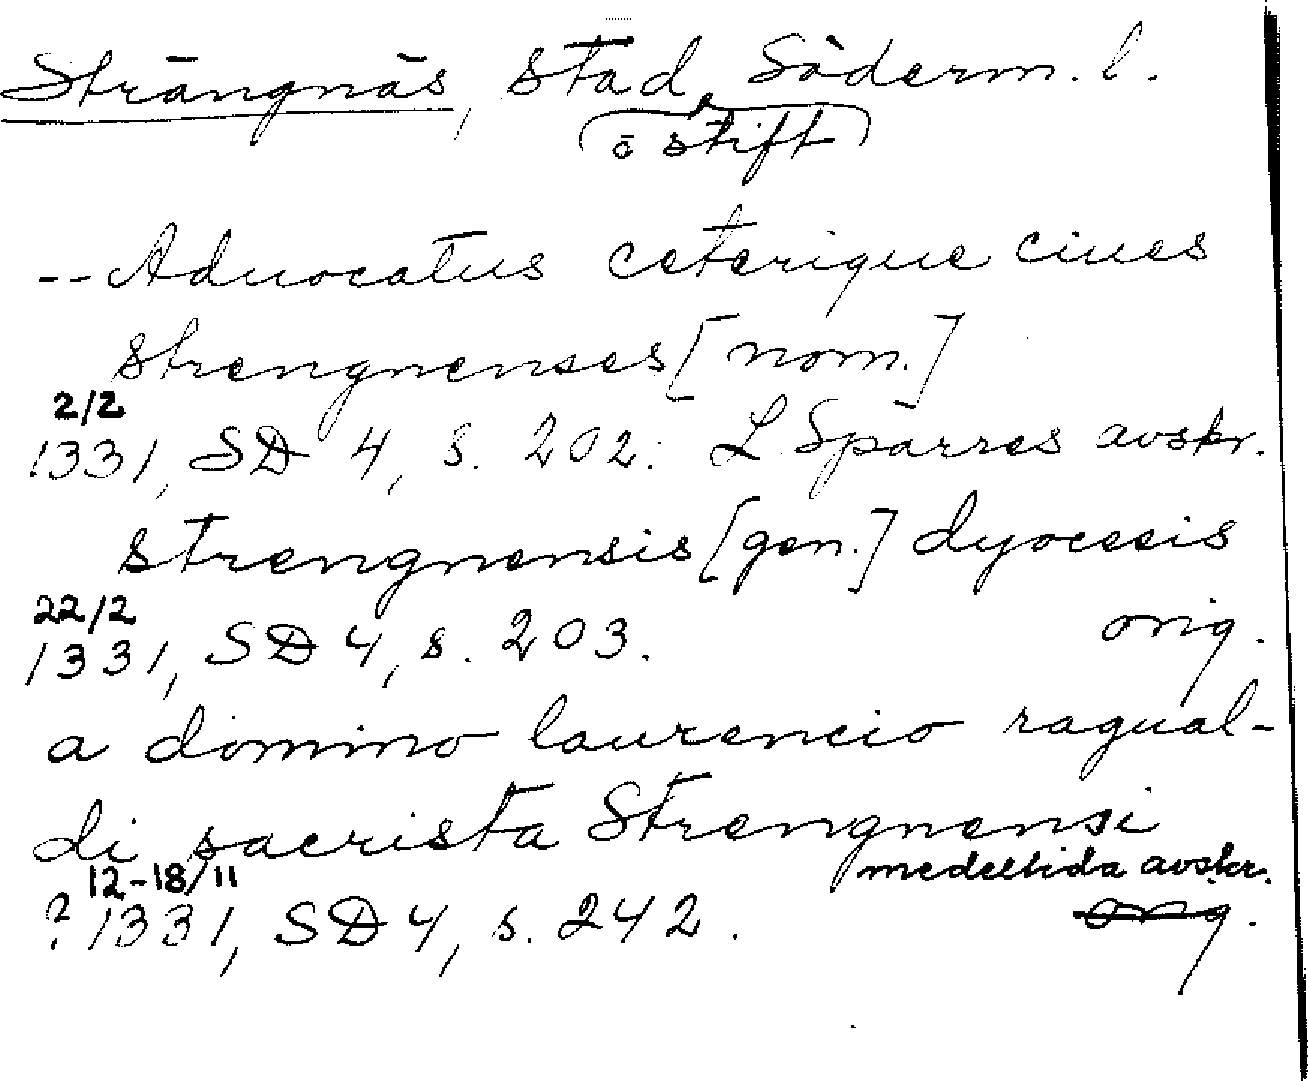 Strängnäs, stad, Söderm. l.
(o stift)
-- Aduocatus ceterique ciues
strengnenses [nom.]
2/2
1331, SD 4, s. 202. L Sparres avskr.
strengnensis [gen.] dyocesis
22/2
1331, SD 4, s. 203. orig.
a domino laurencio ragual-
di sacrista Strengnensi
12-18/11 medeltida avskr.
? 1331, SD 4, s. 242. orig.